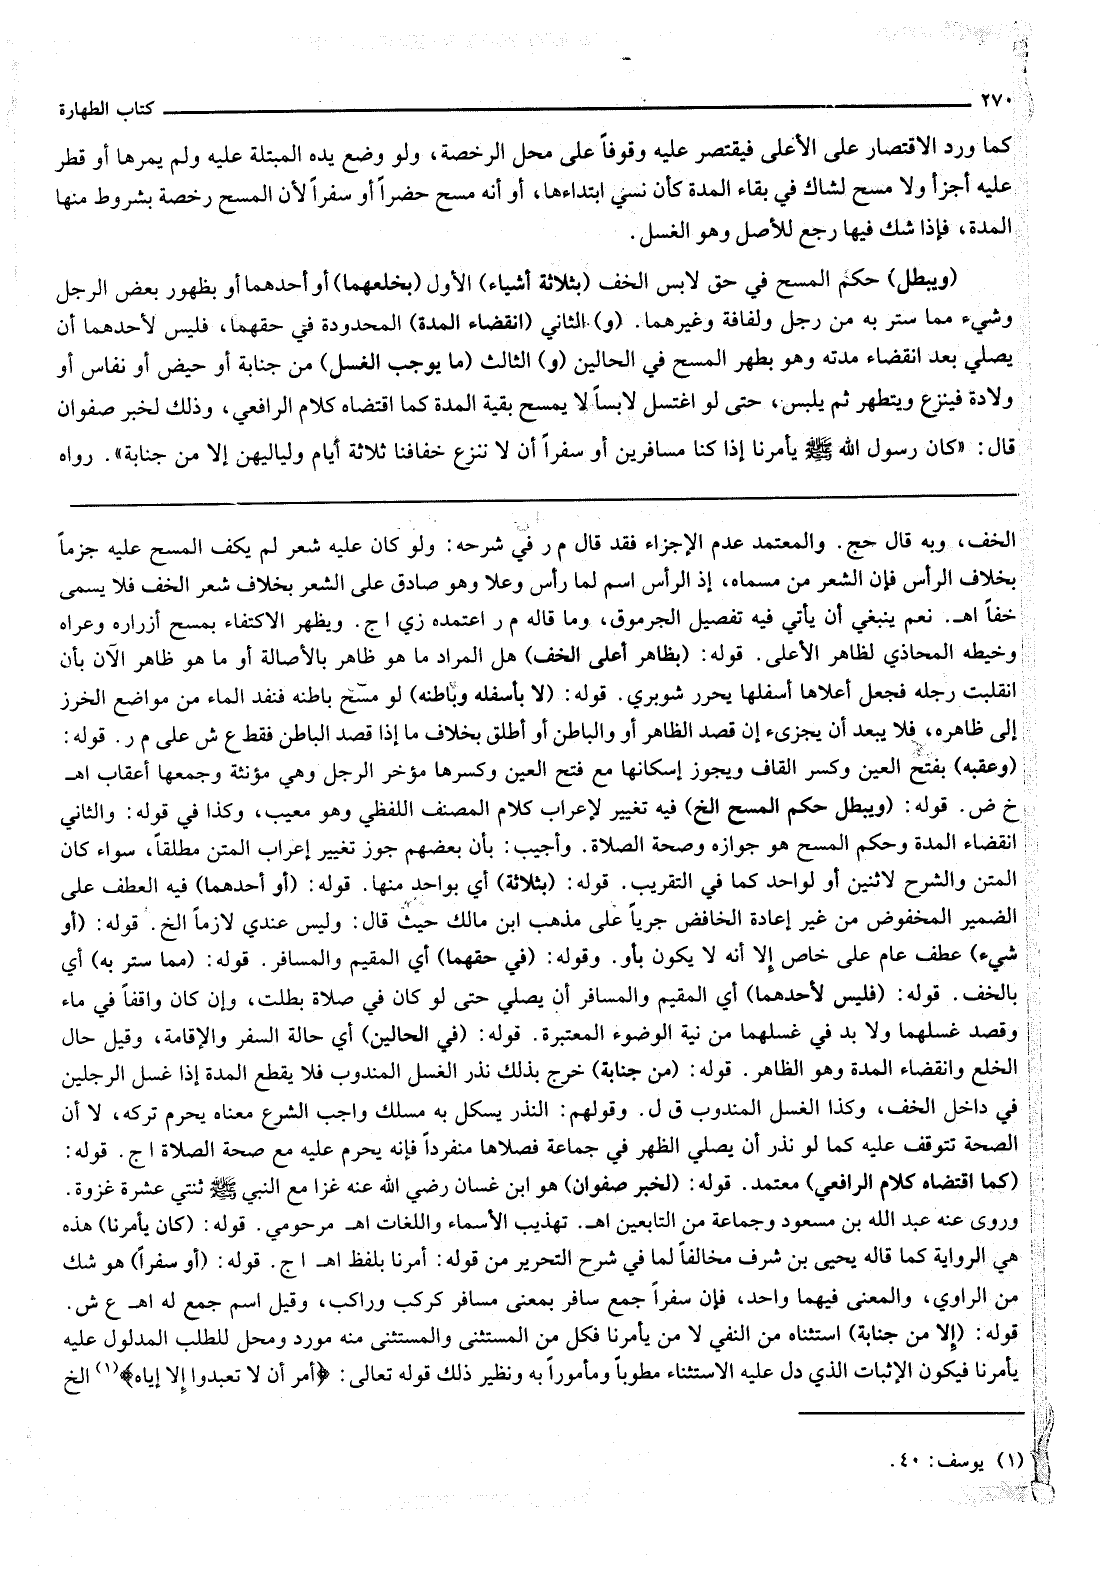 ٢٧٠ كتاب الطهارة
كما ورد الاقتصار على الأعلى فيقتصر عليه وقوفاً على محل الرخصة، ولو وضع يده المبتلة عليه ولم يمرها أو قطر
عليه أجزأ ولا مسح لشاك في بقاء المدة كأن نسي ابتداءها، أو أنه مسح حضراً أو سفراً لأن المسح رخصة بشروط منها
المدة، فإذا شك فيها رجع للأصل وهو الغسل.
(ويبطل) حكم المسح في حق لابس الخف (بثلاثة أشياء) الأول (بخلعهما) أو أحدهما أو بظهور بعض الرجل
وشيء مما ستر به من رجل ولفافة وغيرهما. (و) الثاني (انقضاء المدة) المحدودة في حقهما، فليس لأحدهما أن
يصلي بعد انقضاء مدته وهو بطهر المسح في الحالين (و) الثالث (ما يوجب الغسل) من جنابة أو حيض أو نفاس أو
ولادة فينزع ويتطهر ثم يلبس، حتى لو اغتسل لابساً لا يمسح بقية المدة كما اقتضاه كلام الرافعي، وذلك لخبر صفوان
قال: «كان رسول الله ﷺ يأمرنا إذا كنا مسافرين أو سفراً أن لا ننزع خفافنا ثلاثة أيام ولياليهن إلا من جنابة». رواه
الخف، وبه قال حج. والمعتمد عدم الإجزاء فقد قال م ر في شرحه: ولو كان عليه شعر لم يكف المسح عليه جزماً
بخلاف الرأس فإن الشعر من مسماه، إذ الرأس اسم لما رأس وعلا وهو صادق على الشعر بخلاف شعر الخف فلا يسمى
خفاً اهـ. نعم ينبغي أن يأتي فيه تفصيل الجرموق، وما قاله م ر اعتمده زي ا ج. ويظهر الاكتفاء بمسح أزراره وعراه
وخيطه المحاذي لظاهر الأعلى. قوله: (بظاهر أعلى الخف) هل المراد ما هو ظاهر بالأصالة أو ما هو ظاهر الآن بأن
انقلبت رجله فجعل أعلاها أسفلها يحرر شوبري. قوله: (لا بأسفله وباطنه) لو مسح باطنه فنفد الماء من مواضع الخرز
إلى ظاهره، فلا يبعد أن يجزىء إن قصد الظاهر أو والباطن أو أطلق بخلاف ما إذا قصد الباطن فقط ع ش على م ر. قوله:
(وعقبه) بفتح العين وكسر القاف ويجوز إسكانها مع فتح العين وكسرها مؤخر الرجل وهي مؤنثة وجمعها أعقاب اهـ
خ ض. قوله: (ويبطل حكم المسح الخ) فيه تغيير لإعراب كلام المصنف اللفظي وهو معيب، وكذا في قوله: والثاني
انقضاء المدة وحكم المسح هو جوازه وصحة الصلاة. وأجيب: بأن بعضهم جوز تغيير إعراب المتن مطلقاً، سواء كان
المتن والشرح لاثنين أو لواحد كما في التقريب. قوله: (بثلاثة) أي بواحد منها. قوله: (أو أحدهما) فيه العطف على
الضمير المخفوض من غير إعادة الخافض جرياً على مذهب ابن مالك حيث قال: وليس عندي لازماً الخ. قوله: (أو
شيء) عطف عام على خاص إلا أنه لا يكون بأو. وقوله: (في حقهما) أي المقيم والمسافر. قوله: (مما ستر به) أي
بالخف. قوله: (فليس لأحدهما) أي المقيم والمسافر أن يصلي حتى لو كان في صلاة بطلت، وإن كان واقفاً في ماء
وقصد غسلهما ولا بد في غسلهما من نية الوضوء المعتبرة. قوله: (في الحالين) أي حالة السفر والإقامة، وقيل حال
الخلع وانقضاء المدة وهو الظاهر. قوله: (من جنابة) خرج بذلك نذر الغسل المندوب فلا يقطع المدة إذا غسل الرجلين
في داخل الخف، وكذا الغسل المندوب ق ل. وقولهم: النذر يسكل به مسلك واجب الشرع معناه يحرم تركه، لا أن
الصحة تتوقف عليه كما لو نذر أن يصلي الظهر في جماعة فصلاها منفرداً فإنه يحرم عليه مع صحة الصلاة ا ج. قوله:
(كما اقتضاه كلام الرافعي) معتمد. قوله: (لخبر صفوان) هو ابن غسان رضي الله عنه غزا مع النبي ﷺ ثنتي عشرة غزوة.
وروى عنه عبد الله بن مسعود وجماعة من التابعين اهـ. تهذيب الأسماء واللغات اهـ مرحومي. قوله: (كان يأمرنا) هذه
هي الرواية كما قاله يحيى بن شرف مخالفاً لما في شرح التحرير من قوله: أمرنا بلفظ اهـ ا ج. قوله: (أو سفراً) هو شك
من الراوي، والمعنى فيهما واحد، فإن سفراً جمع سافر بمعنى مسافر كركب وراكب، وقيل اسم جمع له اهـ ع ش.
قوله: (إلا من جنابة) استثناه من النفي لا من يأمرنا فكل من المستثنى والمستثنى منه مورد ومحل للطلب المدلول عليه
يأمرنا فيكون الإثبات الذي دل عليه الاستثناء مطوباً ومأموراً به ونظير ذلك قوله تعالى: ﴿أمر أن لا تعبدوا إلا إياه﴾(١) الخ
(١) يوسف: ٤٠.